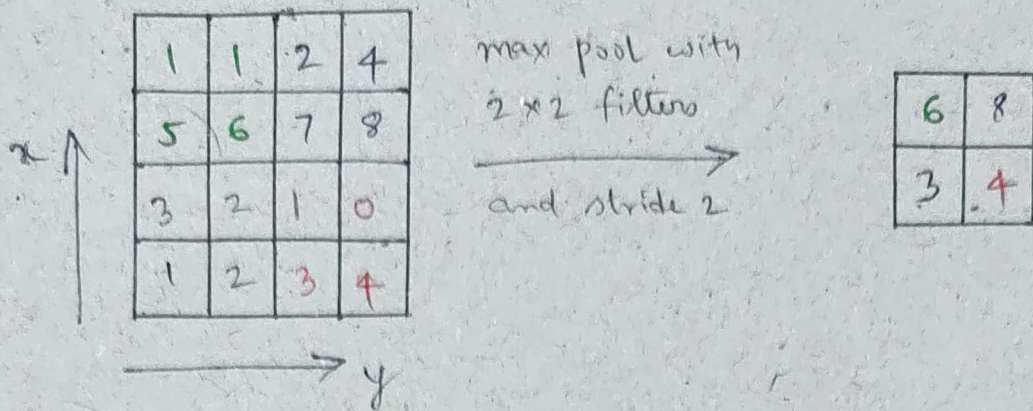 1 1 2 4
5 6 7 8
3 2 1 0
1 2 3 4
x
y
max pool with
2 × 2 filters
and stride 2
6 8
3 4